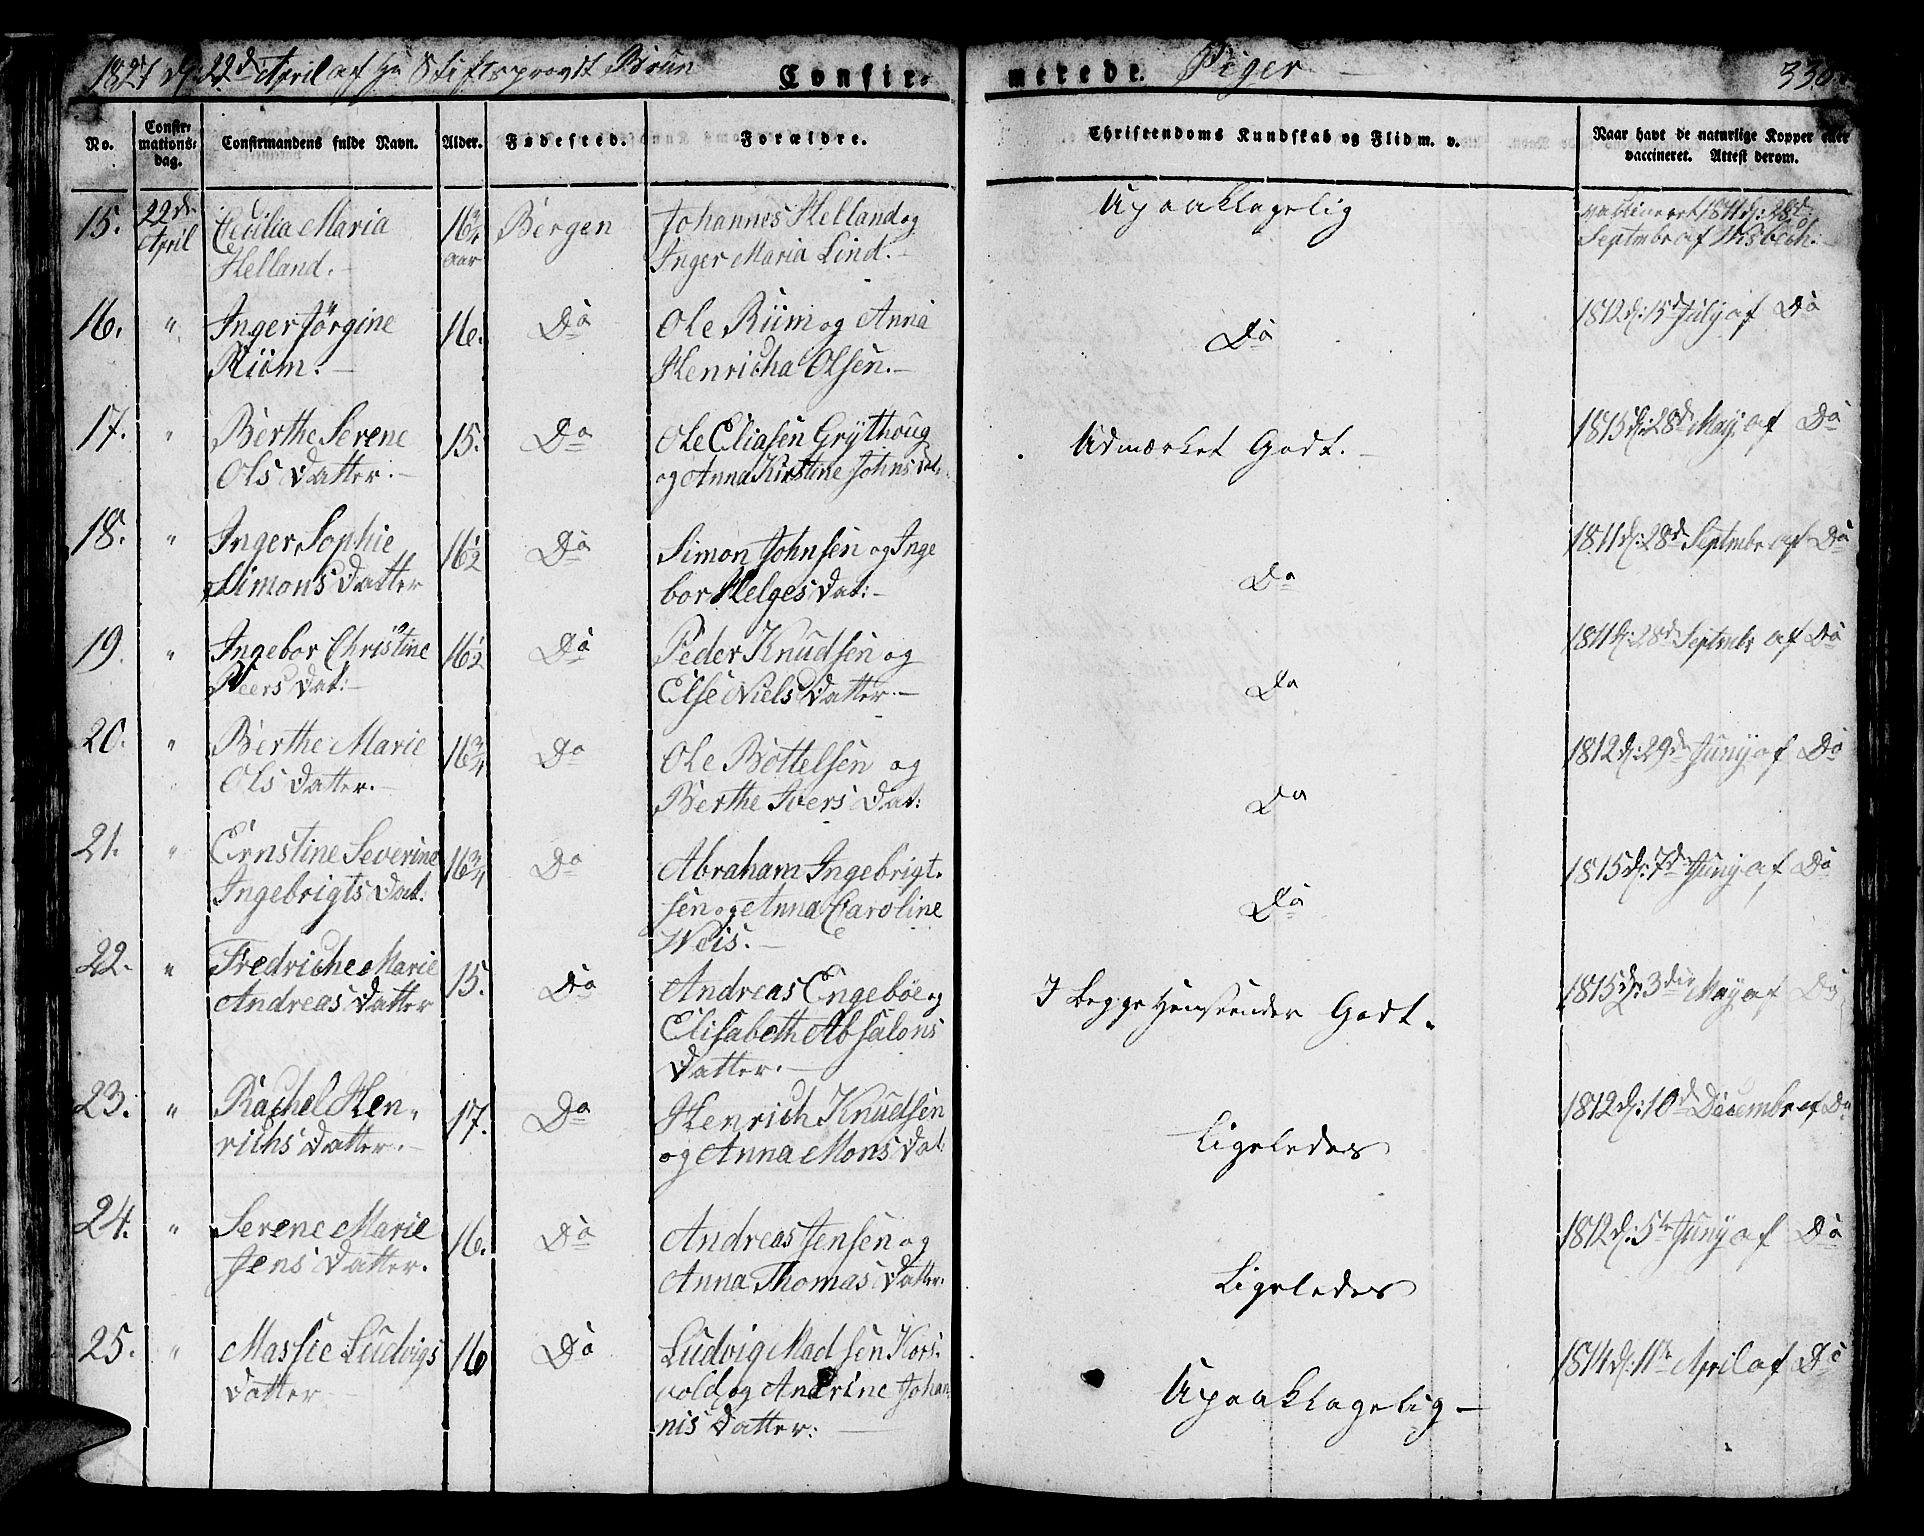 1827 d: 22de April af Hr Stiftsprovst Brun
Confir- merede. Piger 330
No. Confir-mations-dag. Confirmandens fulde Navn. Alder. Fødested. Forældre. Christendoms Kundskab og Flid m. v. Naar havt de naturlige Kopper eller vaccineret. Attest derom.
15. 22de April Cecilia Maria Helland.- 16 3/4 Aar Bergen Johannes Helland og Inger Maria Lind.- Upaaklagelig Vaccineret 1811 d: 28d: Septmbr af Wisbech.
16. " Inger Jörgine Riim.- 16. Do Ole Riim og Anna Henricha Olsen.- Do 1812 d: 15d July af Do
17. " Berthe Serene Ols Datter.- 15. Do Ole Eliasen Grÿthoug og Anna Kirstine Johns Dat. Udmærket Godt.- 1813 d: 28d May af Do
18. " Inger Sophie Simons Datter 16 1/2 Do Simon Johnsen og Inge bor Helges Dat:- Do 1811 d: 28d Septmbr af Do
19. " Ingebor Christine Peers Dat:- 16 1/2 Do Peder Knudsen og Else Niels Datter.- Do 1811 d: 28d Septmbr af Do
20. " Berthe Marie Ols Datter.- 16 3/4 Do Ole Bottelsen og Berthe Ivers Dat: Do 1812 d: 29de Juny af Do
21. " Ernstine Severine Ingebrigts Dat. 16 3/4 Do Abraham Ingebrigt. sen og Anna Caroline Weis.- Do 1815 d: 7de Juny af Do
22. " Fredriche Marie Andreas Datter 15. Do Andreas Engeböe og Elisabeth Absalons Datter.- I begge Henseender Godt. 1815 d: 3die May af Do
23. " Rachel Hen- richs Datter.- 17. Do Henrich Knudsen og Anna Mons Dat Ligeledes 1812 d: 10d Decembr af Do
24. " Serene Marie Jens Datter. 16. Do Andreas Jensen og Anna Thomas Datter. Ligeledes 1812 d: 5te Juny af Do
25. " Massie Ludvigs Datter 16 Do Ludvig Madsen Kors- vold og Anerine Johan nis Datter:- Upaaklagelig- 1814 d: 11te April af Do